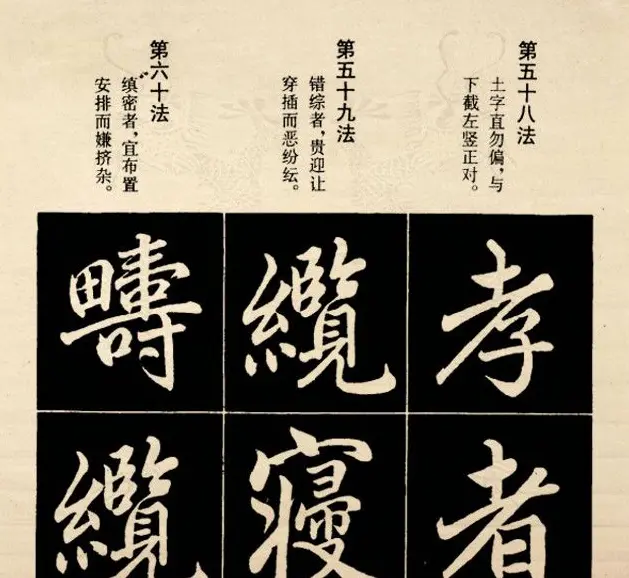 第五十八法
土字直勿偏，与
下截左竖正对。
第五十九法
错综者，贵迎让
穿插而恶纷纭。
第六十法
缜密者，宜布置
安排而嫌挤杂。
孝
纜
疇
者
寝
纜